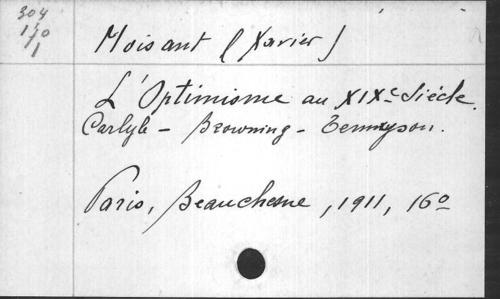 304
140
1
Moisant (Xavier)
L'Optimisme au XIXe Siécle.
Carlyle - Browning - Tennyson.
Paris, Beauchesne, 1911, 16o